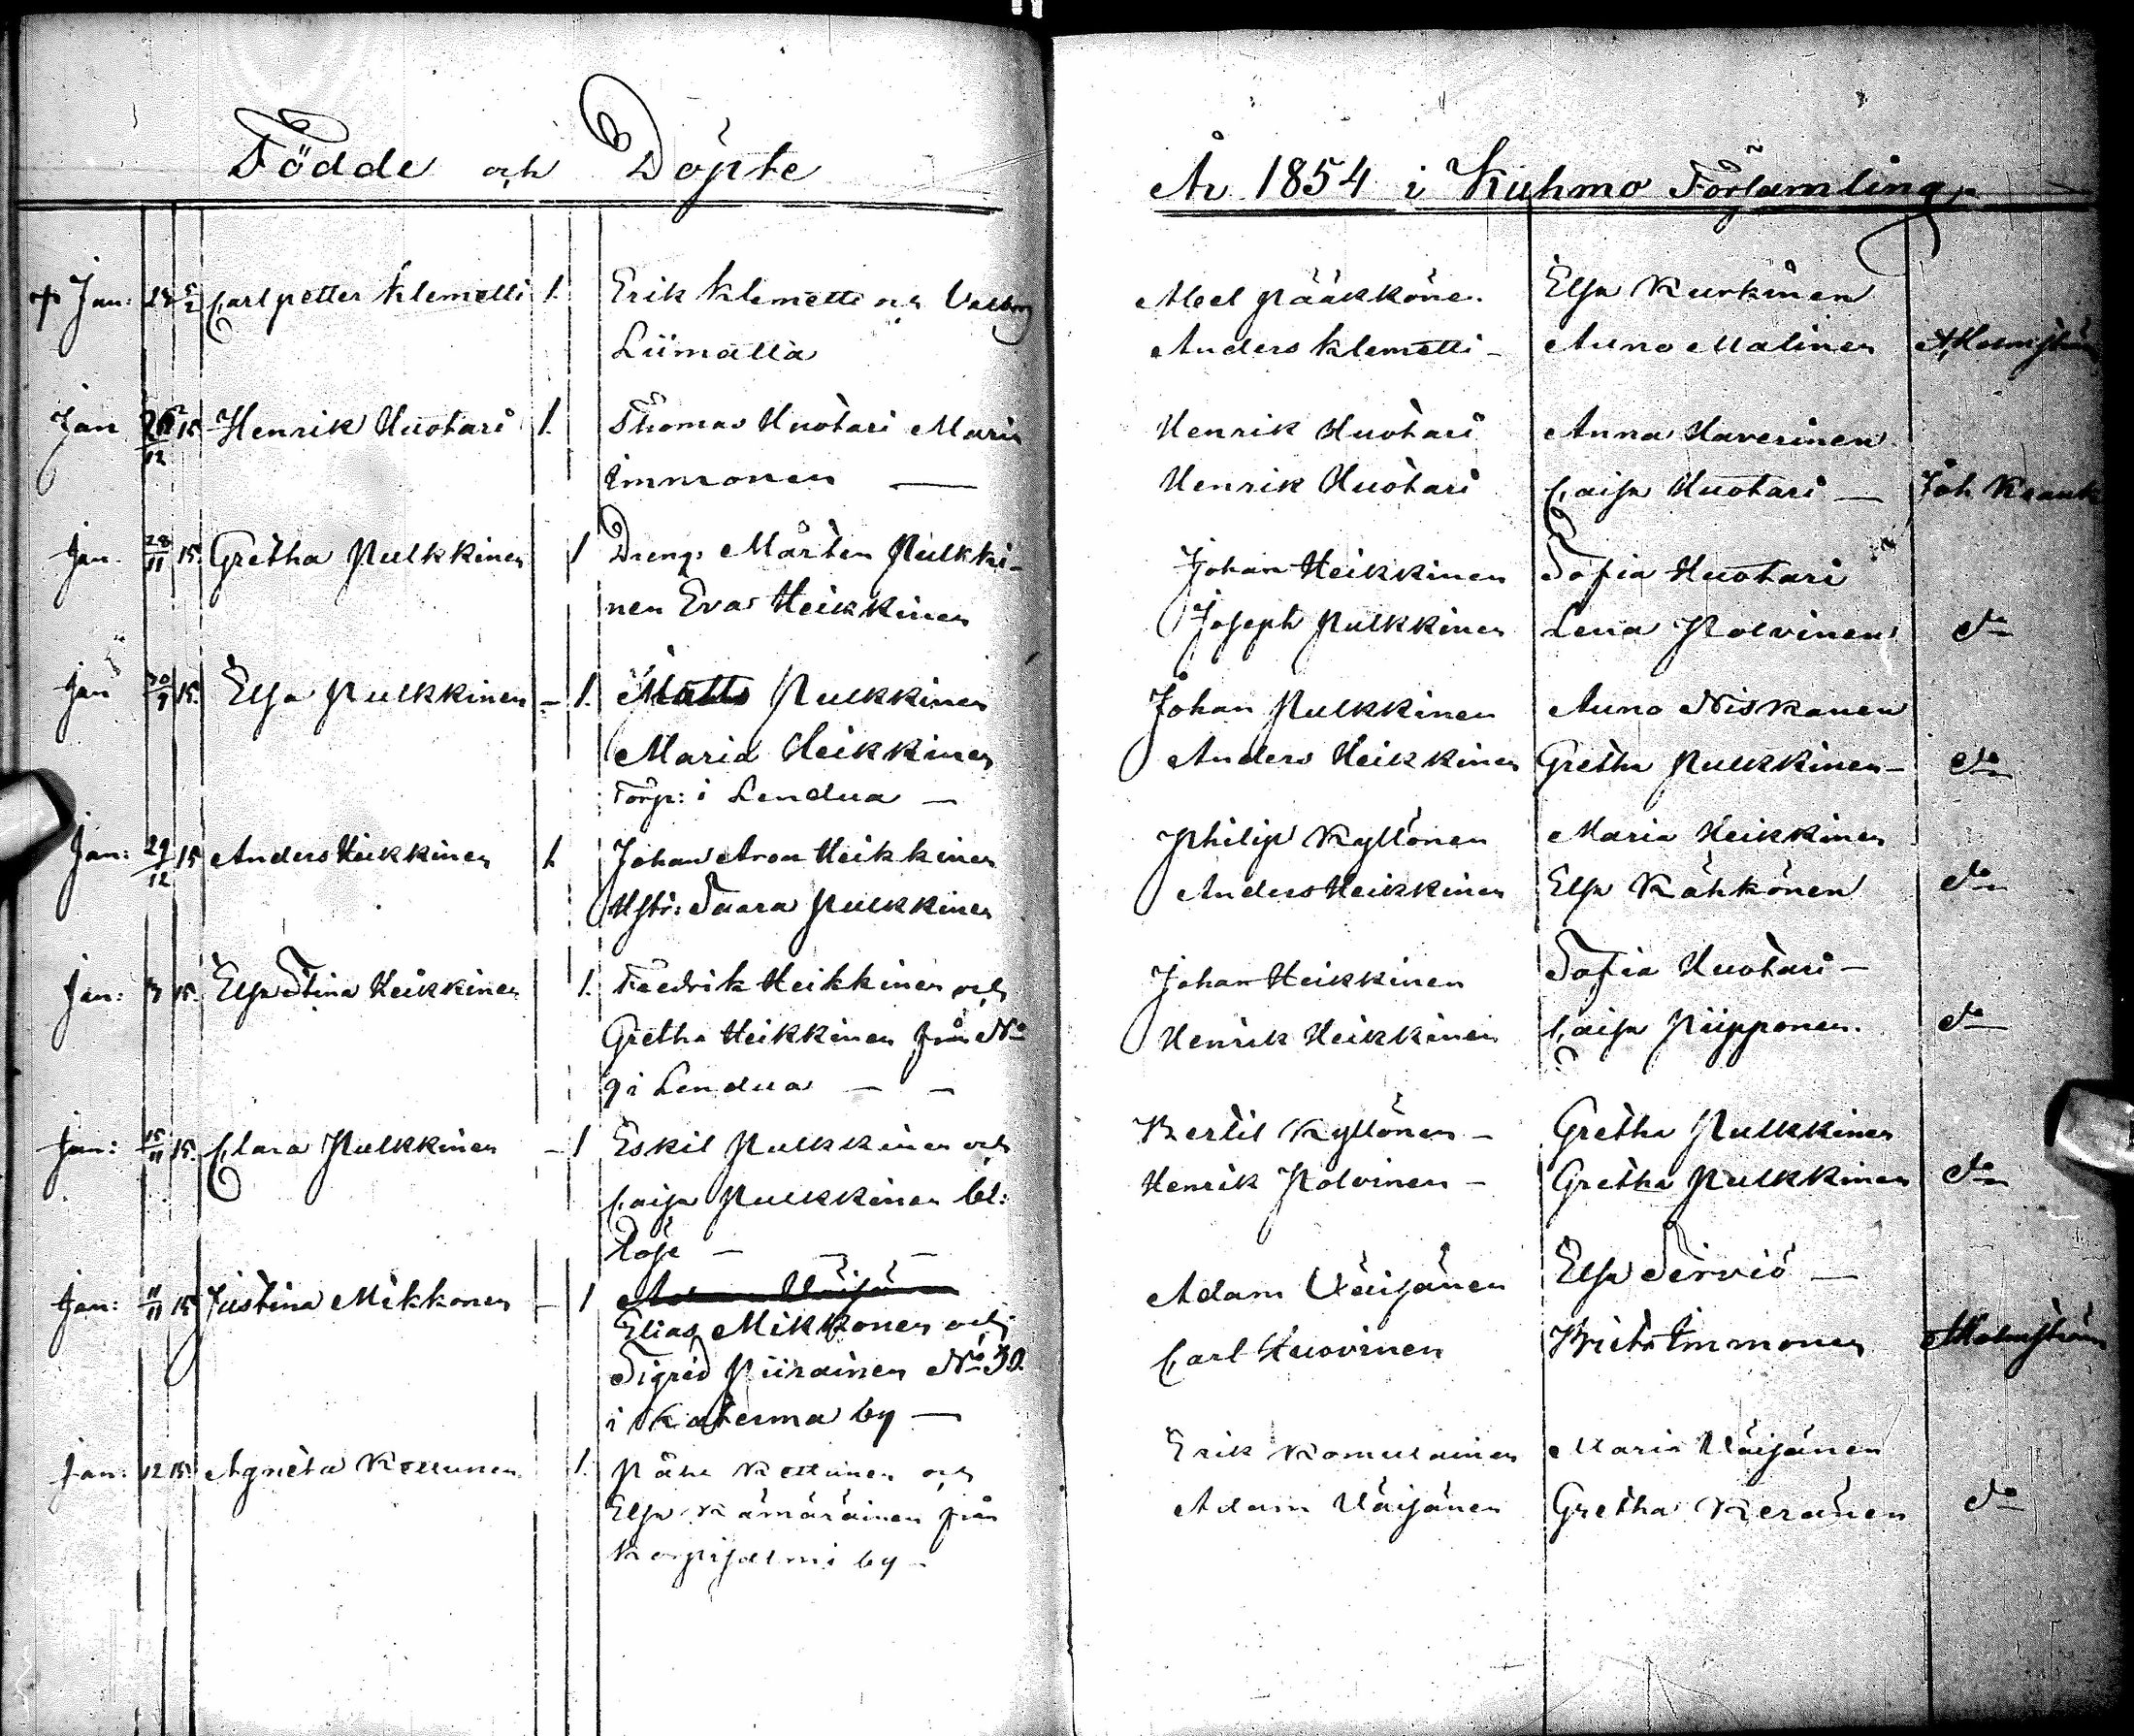 Födde och Döpte
År 1854 i Kuhmo Församling
Jan: Carl petter Klemetti 1. Erik Klemetti och
Liimatta
Abel Pääkköne. Elsa Kurkinen
Anders Klemetti - Anna Malinen
Jan 26/12 15 Henrik Huotari 1. Thomas Huotari Maria
Immonen —
Henrik Huotari Anna Haverinen
Henrik Huotari Caisa Huotari — Joh
Jan. 28/11 15. Gretha Pulkkinen 1 Dreng: Mårten Pulkki-
nen Eva Heikkinen
Johan Heikkinen Sofia Huotari
Joseph Pulkkinen Lena Polvinen do
Jan 30/9 15. Elsa Pulkkinen - 1. Matts Pulkkinen
Maria Heikkinen
Torp: i Lendua —
Johan Pulkkinen Anna Niskanen
Anders Heikkinen Gretha Pulkkinen - do
Jan: 29/12 15 Anders Heikkinen 1 Johan Aron Heikkinen
Hstr: Saara Pulkkinen
Philip Kyllönen Maria Heikkinen
Anders Heikkinen Elsa Kähkönen do
Jan: 3 15. Elsa Stina Heikkinen 1. Fredrik Heikkinen och
Gretha Heikkinen från No
9 i Lendua — —
Johan Heikkinen Sofia Huotari —
Henrik Heikkinen Caisa Piipponen. do
Jan: 15/11 15. Clara Pulkkinen - 1 Eskil Pulkkinen och
Caisa Pulkkinen
— — —
Bertil Kyllönen - Gretha Pulkkinen
Henrik Polvinen - Gretha Pulkkinen do
Jan: 11/11 15 Justina Mikkonen - 1 Adam Väisänen
Elias Mikkonen och
Sigrid Piirainen No 30.
i Katerma by —
Adam Väisänen Elsa Sirviö —
Carl Huovinen Brita Immonen Malmström
Jan: 12 15. Agneta Kettunen 1. Påhl Kettunen och
Elsa Kämäräinen från
Korpisalmi by -
Erik Komulainen Maria Väisänen
Adam Väisänen Gretha Keränen do